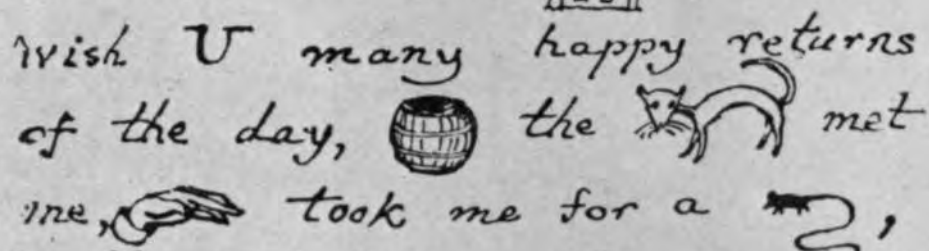 wish U many happy returns
of the day, the met
me, took me for a ,